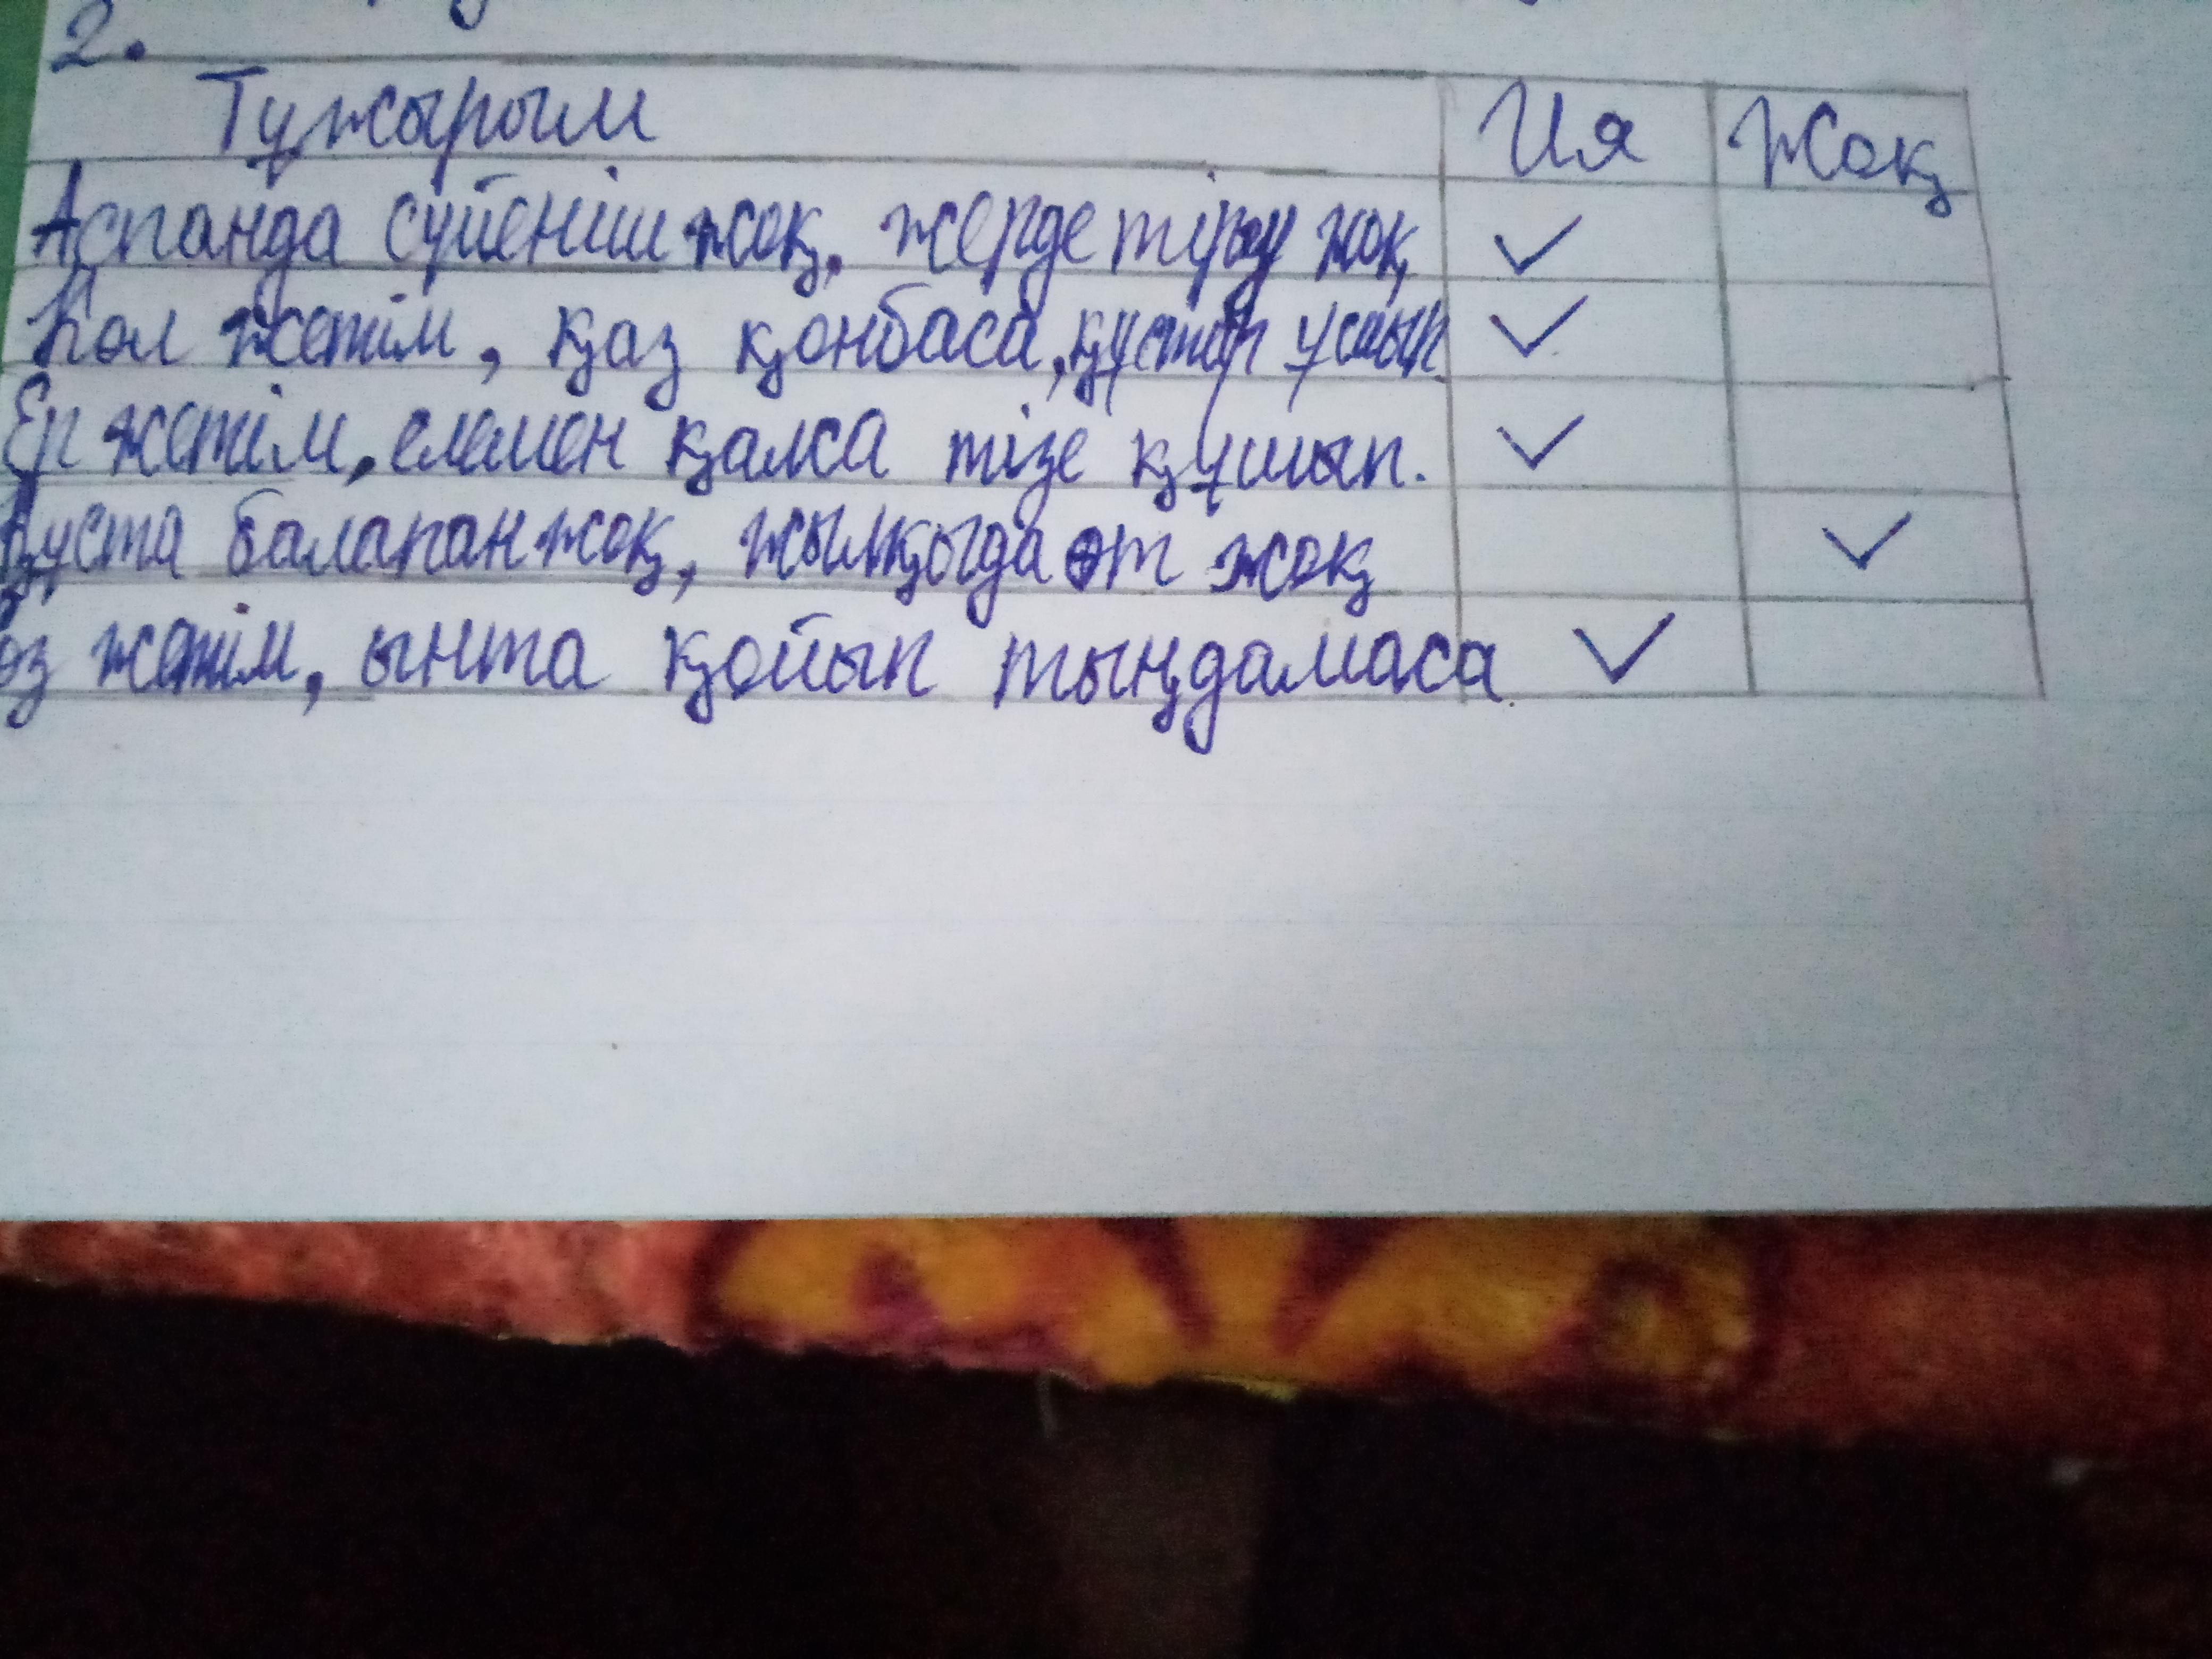 2.
Тұжырым Ия Жоқ
Аспанда сүйеніш жоқ, жерде тіреу жоқ ✓
Көл жетім, қаз қонбаса, құстар ұшып ✓
Ер жетім, елемен қалса тізе құшып. ✓
Құста балапан жоқ, жылқыда от жоқ ✓
өз жетім, ынта қойып тыңдамаса ✓